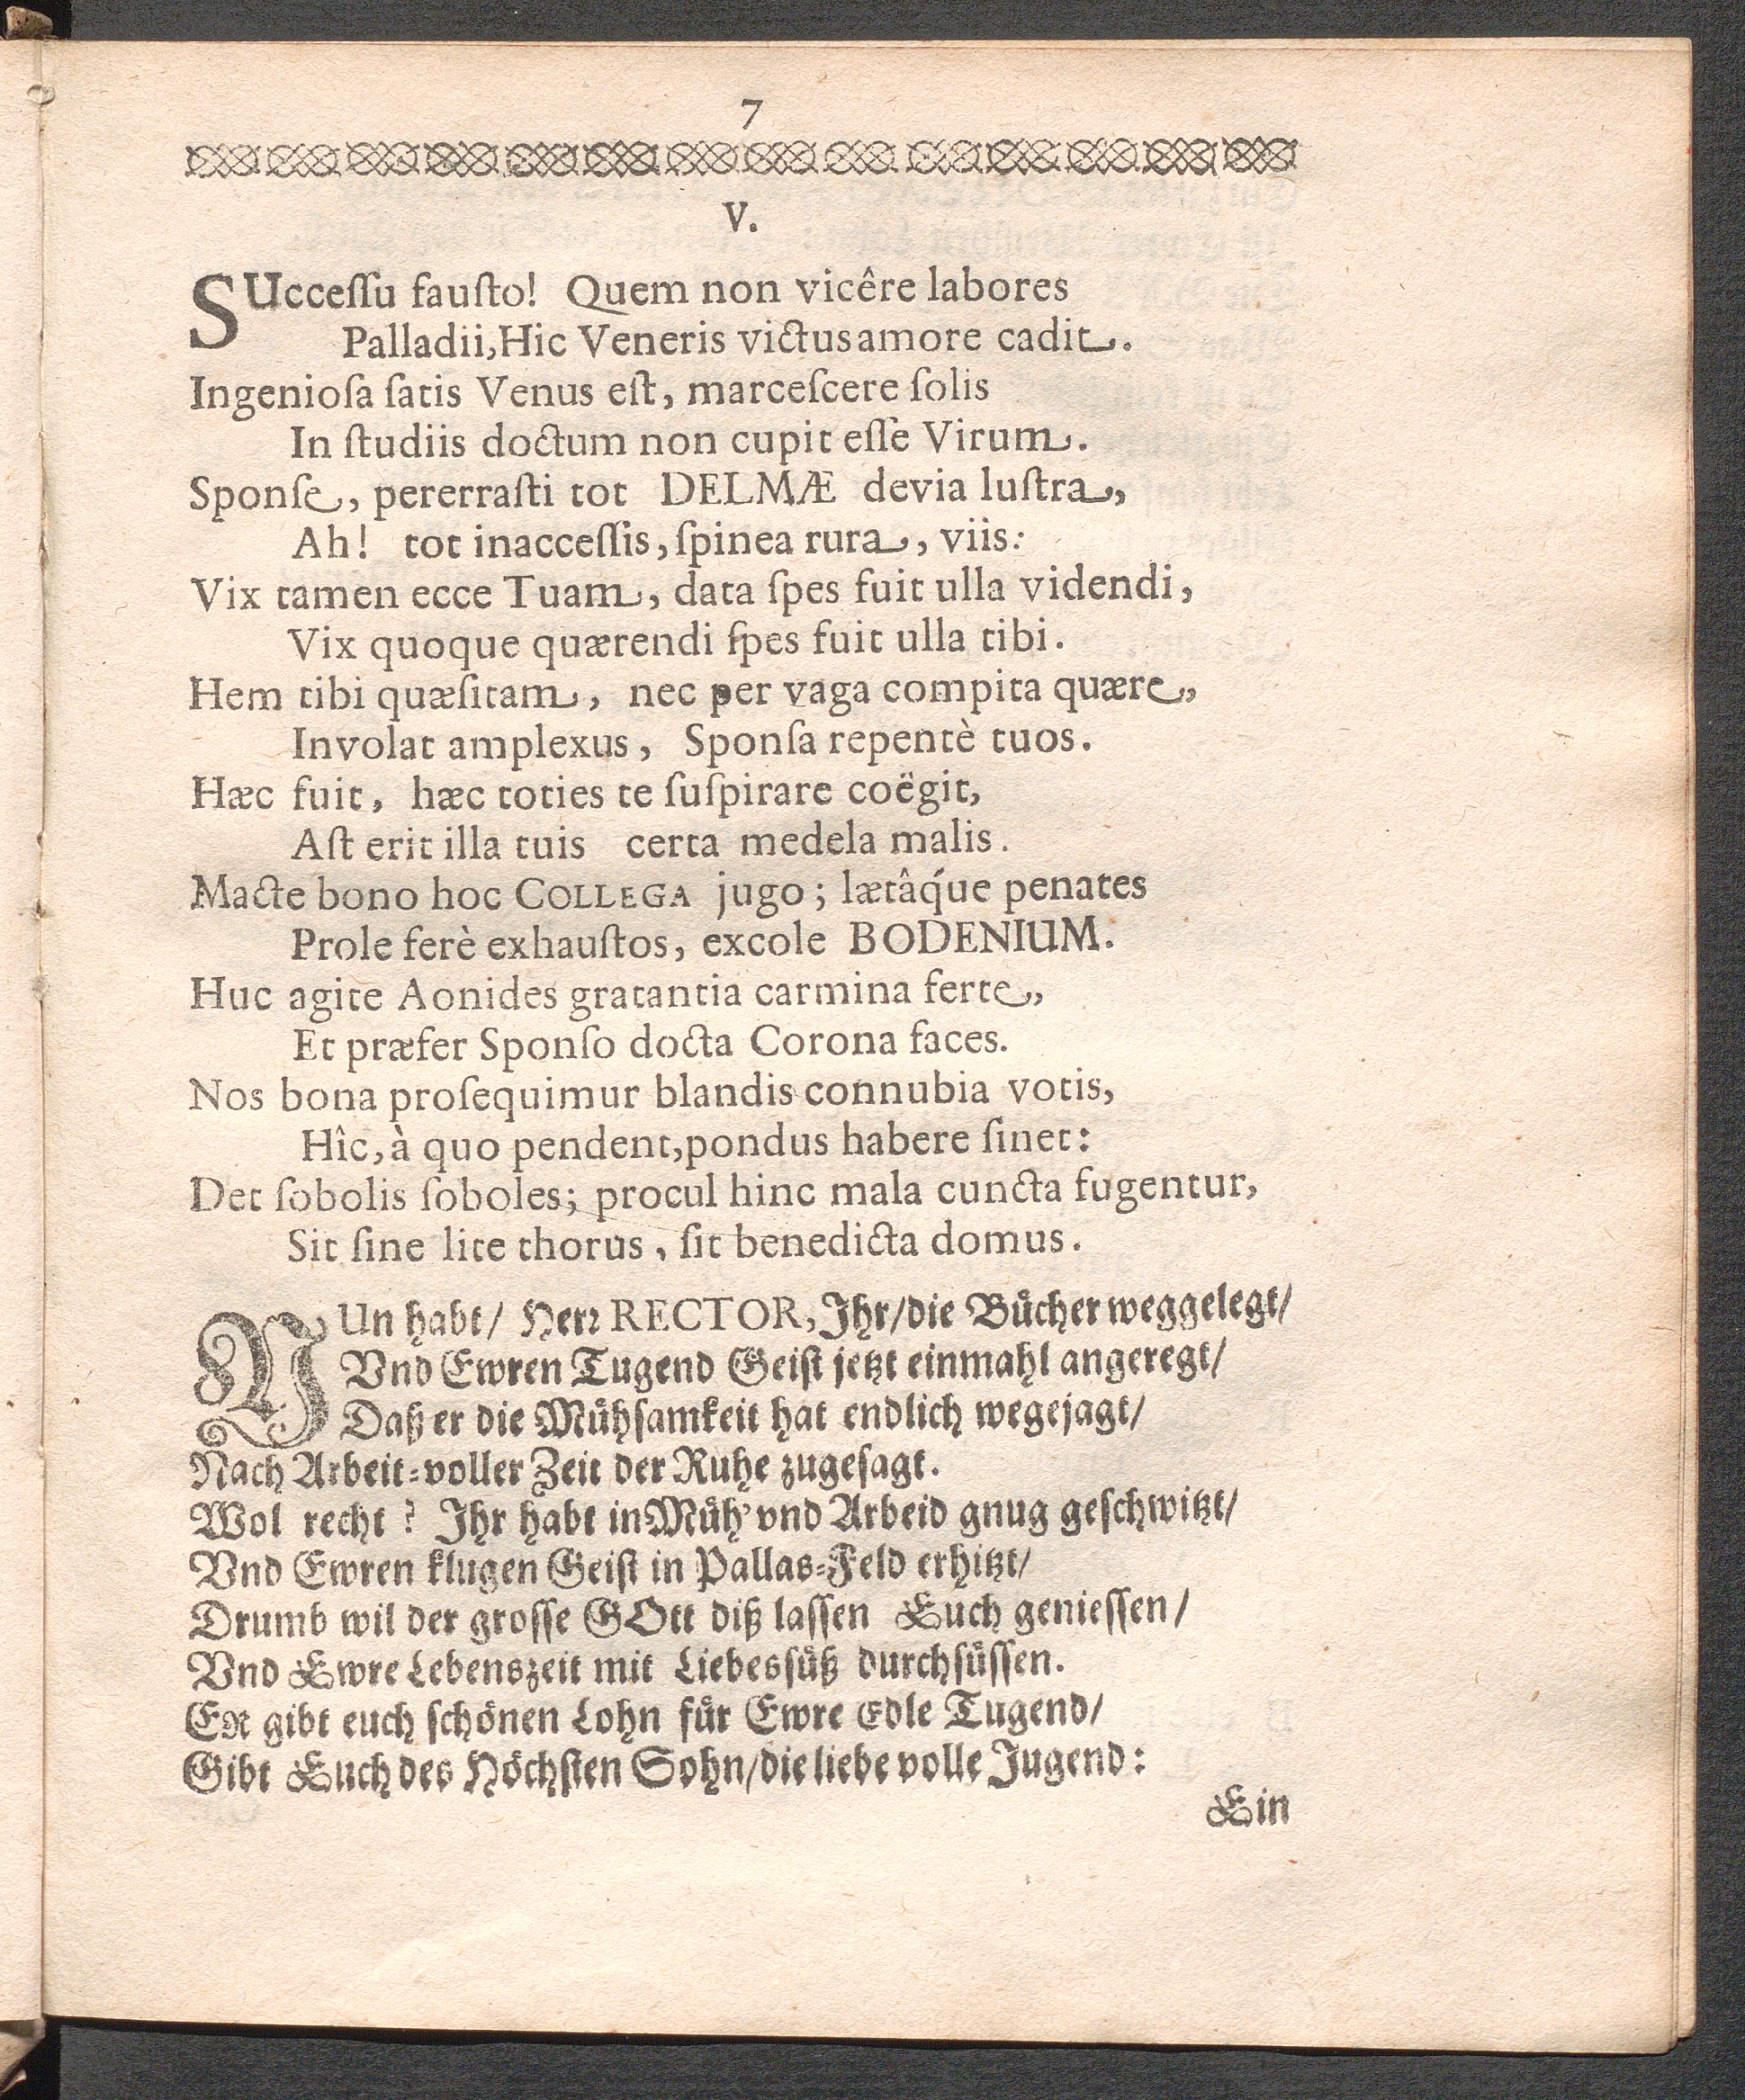 7
V.
SUcceſſu fauſto! Quem non vicêre labores
Palladii, Hic Veneris victus amore cadit.
Ingenioſa ſatis Venus eſt, marceſcere ſolis
In ſtudiis doctum non cupit eſſe Virum.
Sponſe, pererraſti tot DELMÆ devia luſtra,
Ah! tot inacceſſis, ſpinea rura, viis:
Vix tamen ecce Tuam, data ſpes fuit ulla videndi,
Vix quoque quærendi ſpes fuit ulla tibi.
Hem tibi quæſitam, nec per vaga compita quære,
Involat amplexus, Sponſa repentè tuos.
Hæc fuit, hæc toties te ſuſpirare coëgit,
Aſt erit illa tuis certa medela malis.
Macte bono hoc COLLEGA jugo; lætâq́ue penates
Prole ferè exhauſtos, excole BODENIUM.
Huc agite Aonides gratantia carmina ferte,
Et præfer Sponſo docta Corona faces.
Nos bona proſequimur blandis connubia votis,
Hîc, à quo pendent, pondus habere ſinet:
Det ſobolis ſoboles; procul hinc mala cuncta fugentur,
Sit ſine lite thorus, ſit benedicta domus.
NUn habt/ Herr RECTOR, Ihr/die Buͤcher weggelegt/
Vnd Ewren Tugend Geiſt jetzt einmahl angeregt/
Daß er die Muͤhſamkeit hat endlich wegejagt/
Nach Arbeit-voller Zeit der Ruhe zugeſagt.
Wol recht? Ihr habt in Muͤh' vnd Arbeid gnug geſchwitzt/
Vnd Ewren klugen Geiſt in Pallas-Feld erhitzt/
Drumb wil der groſſe GOtt diß laſſen Euch genieſſen/
Vnd Ewre Lebenszeit mit Liebesſuͤß durchſuͤſſen.
ER gibt euch ſchoͤnen Lohn fuͤr Ewre Edle Tugend/
Gibt Euch des Hoͤchſten Sohn/die liebe volle Jugend:
Ein